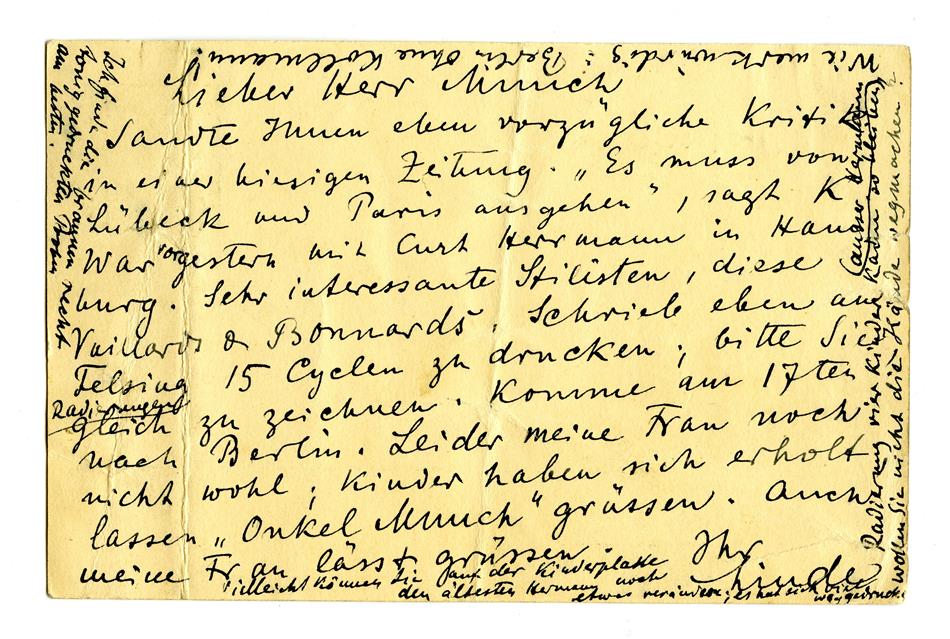 Wie merkwürdig: Berlin ohne Kollmann!
Lieber Herr Munch
Sandte Ihnen eben vorzügliche Kritik
in einer hiesigen Zeitung. „Es muss von
Lübeck und Paris ausgehen“, sagt K
War vorgestern mit Curt Herrmann in Ham
burg. Sehr interessante Stilisten, diese
Vuillards & Bonnards. Schrieb eben an
Felsing 15 Cyclen zu drucken; bitte Sie
Radierungen
gleich zu zeichnen. Komme am 17ten
nach Berlin. Leider meine Frau noch
nicht wohl; Kinder haben sich erholt
lassen „Onkel Munch“ grüssen. Auch
meine Frau lässt grüssen. Ihr
Linde
Vielleicht können Sie auf der Kinderplatte
den ältesten Hermann noch
etwas verändern; es hat sich
Ich finde die braunen
in gedruckten recht
am besten.
Radierung vier Kinder
wollen Sie nicht die Hände wegmachen?